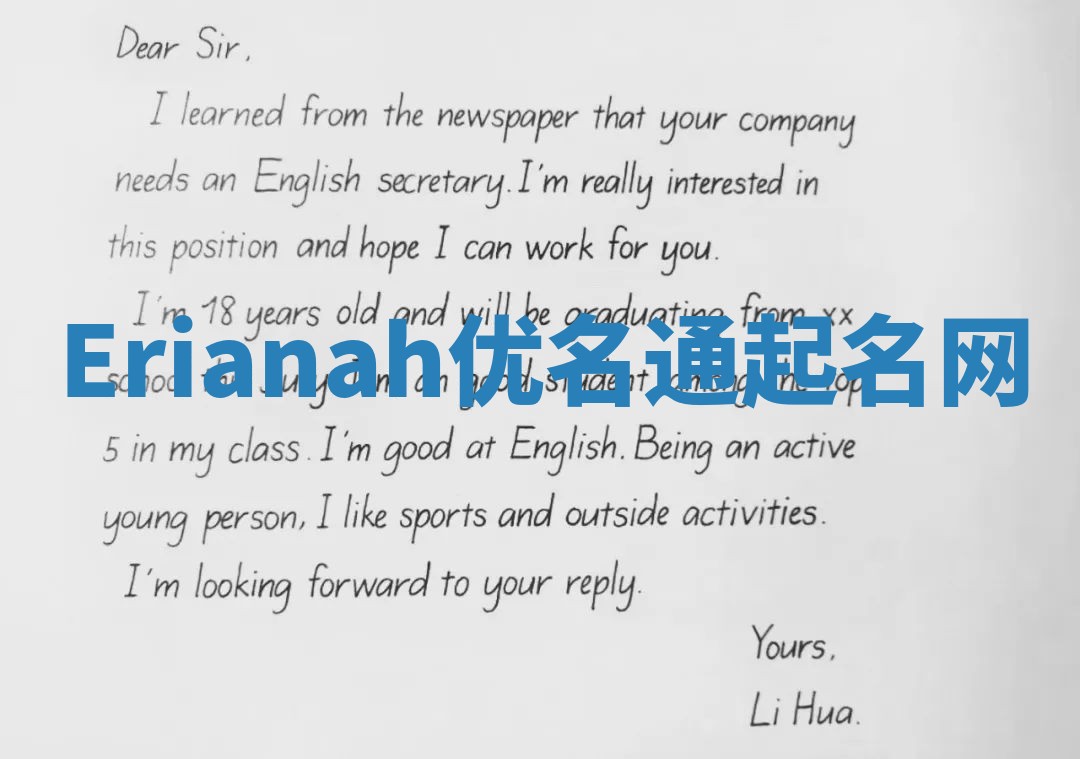 Dear Sir,
I learned from the newspaper that your company
needs an English secretary. I'm really interested in
this position and hope I can work for you.
I'm 18 years old and will be graduating from xx
Erianah优名通起名网
school this July. I'm an good student among the top
5 in my class. I'm good at English. Being an active
young person, I like sports and outside activities.
I'm looking forward to your reply.
Yours,
Li Hua.